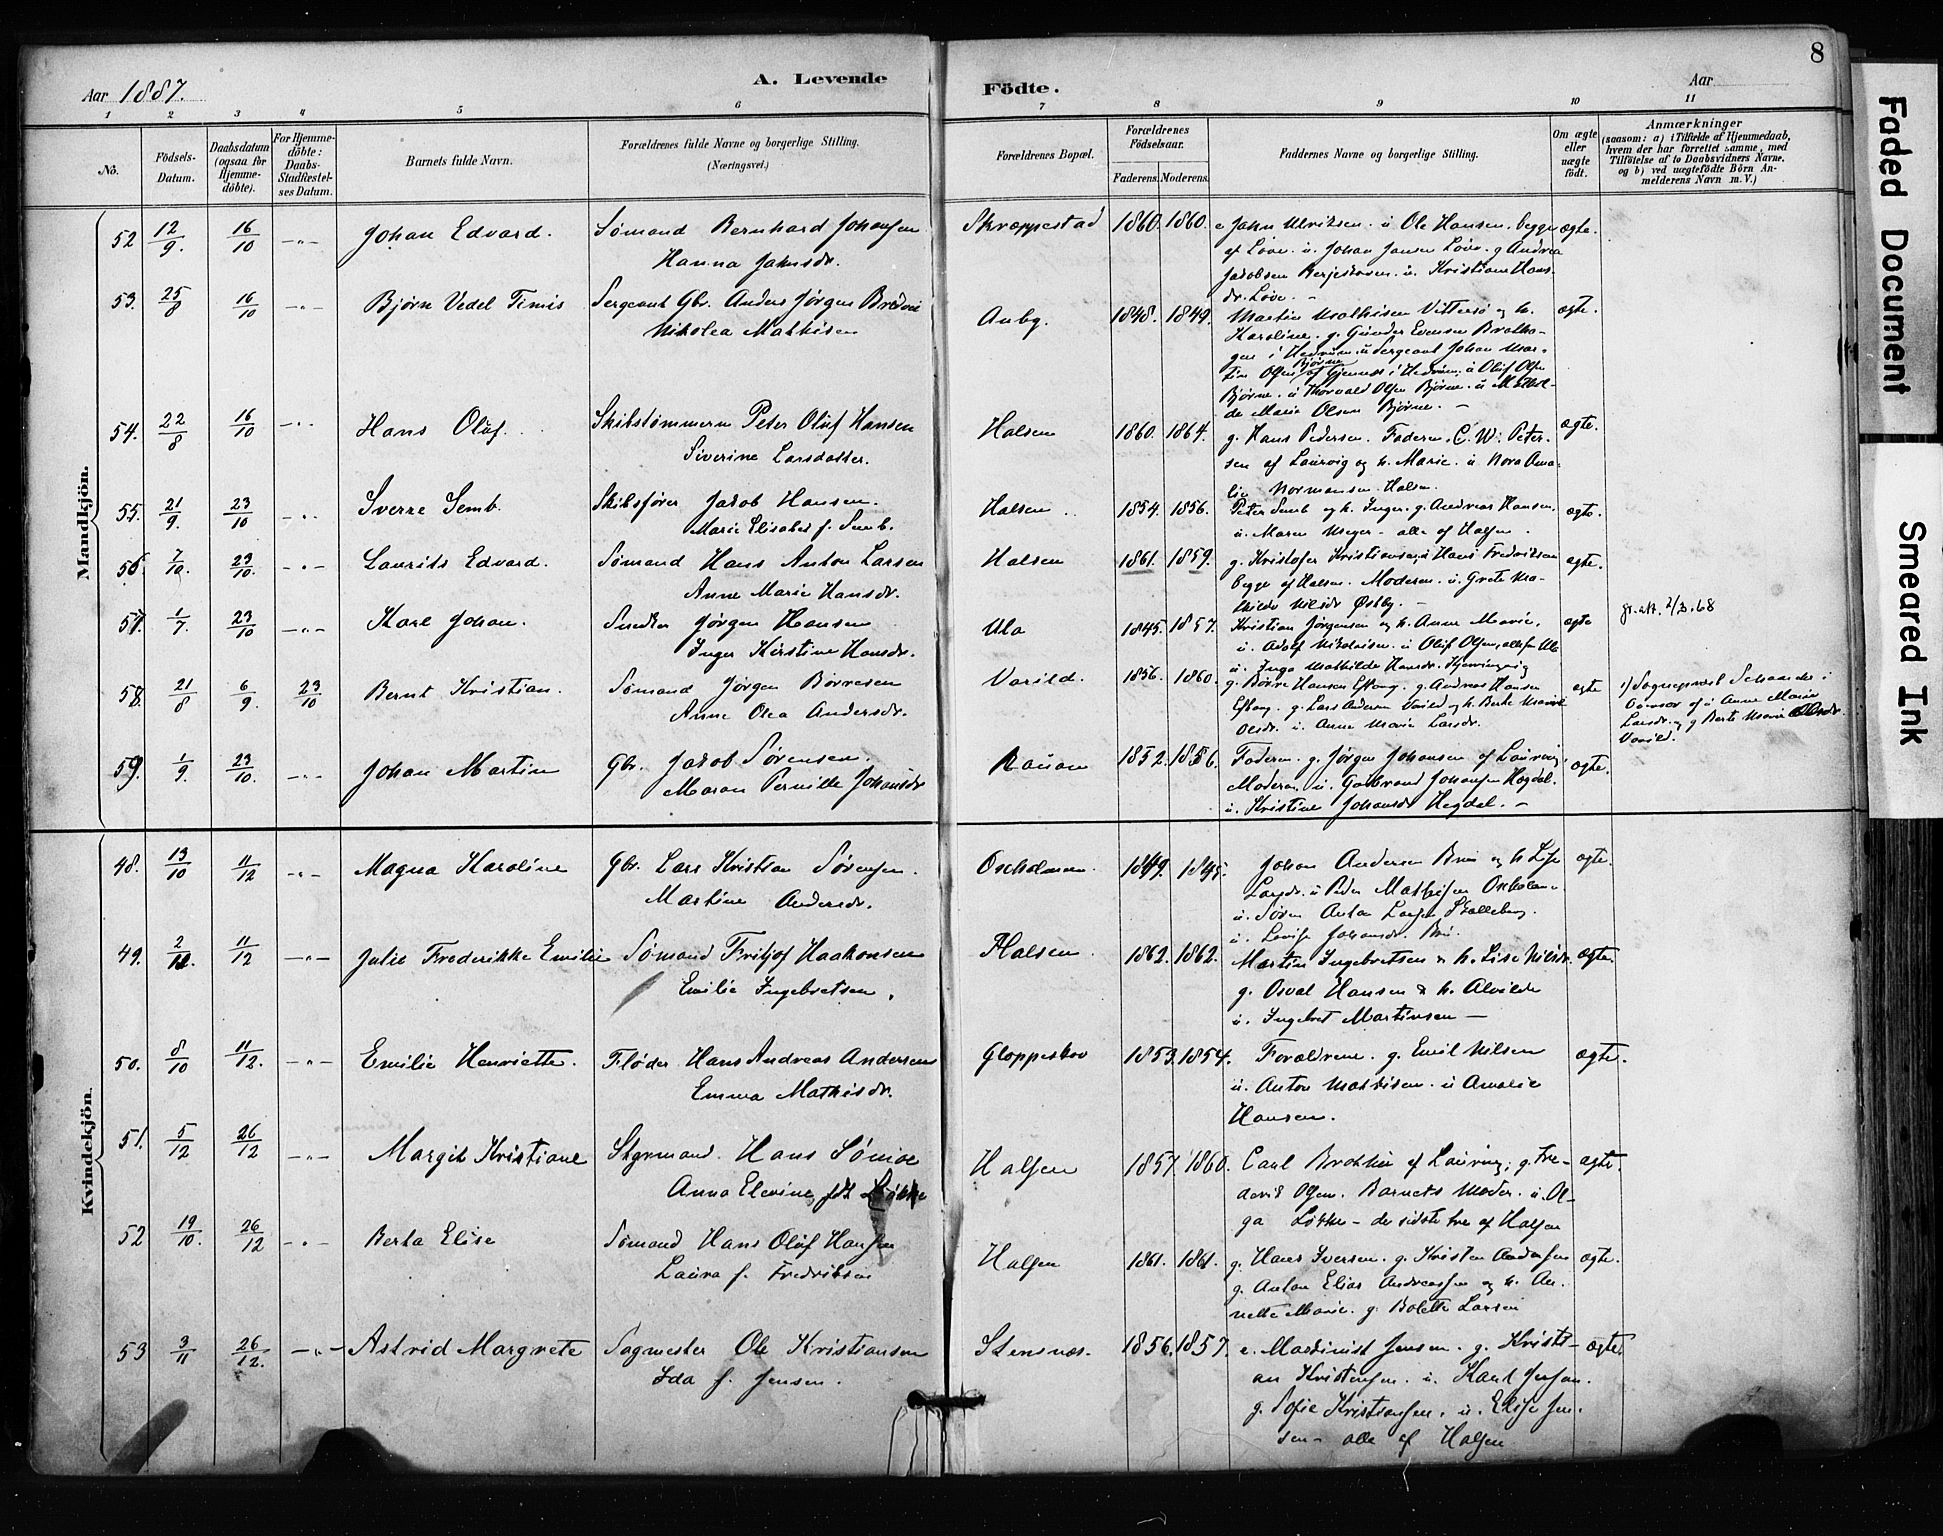 8
Aar 1887.
A. Levende
Födte.
Aar
1 2 3 4 5 6 7 8 9 10 11
No.
Födsels-
Datum.
Daabsdatum
(ogsaa for
Hjemme-
döbte).
For Hjemme-
döbte:
Daabs-
Stadfæstel-
ses Datum.
Barnets fulde Navn.
Forældrenes fulde Navne og borgerlige Stilling.
(Næringsvei.)
Forældrenes Bopæl.
Forældrenes
Födselsaar.
Faderens. Moderens.
Faddernes Navne og borgerlige Stilling.
Om ægte
eller
uægte
födt.
Anmærkninger
(saasom: a) i Tilfælde af Hjemmedaab,
hvem der har forrettet samme, med
Tilföielse af to Daabsvidners Navne.
og b) ved uægtefödte Börn An-
melderens Navn m. V.)
Mandkjön.
52 12/9. 16/10 -"- Johan Edvard. Sømand Bernhard Johansen
Hanna Jakusdr.
Skræppestad 1860. 1860. ægte.
af Løve. u. Johan Jensen Løve. g. Andrea
Jakobsen u. Kristiane Hans-
dr. Løve. -
53. 25/8 16/10 -"- Bjørn Vedel Timis Sergeant Gbr. Anders Jørgen
Nikolea Mathisen
Auby. 1848. 1849. Martin Mathisen Vittersø og h. ægte.
Karoline. g. Gunder Evensen
gen i Hedrum. u. Sergeant Johan Mar-
tin Olsen Bjørne af Gjennes i Hedrum. u. Oluf Olsen
Bjørne. u. Thorvald Olsen Bjørne. u. Mathil-
de Marie Olsen Bjørne. -
54. 22/8 16/10 -"- Hans Oluf. Skibstømmerm Peter Oluf Hansen
Siverine Larsdatter.
Halsen 1860. 1864. g. Hans Pedersen. Faderen. C. W. Peter- ægte.
sen af Laurvig og h. Marie. u. Nora Ama-
lie Normansen. Halsen.
55. 21/9. 23/10 -"- Sverre Semb. Skibsfører Jakob Hansen.
Marie Elisabet f. Semb.
Halsen. 1854. 1856. Peter Semb og h. Inger. g. Andreas Hansen. ægte.
u. Maren Meyer - alle af Halsen.
56. 7/10. 23/10. -"- Laurits Edvard. Sømand Hans Anton Larsen
Anne Marie Hansdr.
Halsen 1861. 1859. g. Kristofer Kristiansen. u. Hans Fredriksen ægte.
begge af Halsen. Moderen. u. Grete Ma-
thilde Nilsdr Østby. -
57. 1/7. 23/10 -"- Karl Johan. Jørgen Hansen
Inger Kirstine Hansdr.
Ula 1845. 1857. Kristian Jørgensen og h. Anne Marie. ægte
u. Adolf Nikolaisen. u. Oluf Olsen, alle fra Ula
u. Inga Mathilde Hansdr.
58. 21/8 6/9. 23/10 Bernt Kristian. Sømand Jørgen Børresen
Anne Olea Andersdr.
Varild. 1856. 1860. g. Børre Hansen Eftang. g. Andreas Hansen ægte
Eftang. g. Lars Andersen Varild og h. Berte Marie
Olsdr. u. Anne Marie Larsdr.
1) Sogneprest
Anne Marie
Larsdr. og g Berte Marie Olsdr.
Varild.
59. 1/9. 23/10. -"- Johan Martin Gbr. Jakob Sørensen.
Maren Pernille Johansdr
Rauan 1852. 1856. Faderen. g. Jørgen Johansen af Laurvig. ægte.
Moderen. u. Gulbrand Johansen Hegdal.
u. Kristine Johansdr Hegdal. -
Kvindekjön.
48. 13/10 11/12 -"- Magna Karoline Gbr. Lars Kristian Sørensen.
Martine Andersdr.
Oxholmen. 1849. 1845. Johan Andersen Bru og h. Lise ægte.
Larsdr. u. Peder Mathisen Oxholmen
u. Søren Anton Larsen
u. Lovise Johansdr. Bru.
49. 2/11. 11/12 -"- Julie Frederikke Emilie Sømand Fritjof Haakonsen
Emilie Ingebretsen.
Halsen. 1862. 1862. Martin Ingebretsen & h. Lise Nilsdr. ægte.
g. Osval Hansen & h. Alvilde
u. Ingebret Martinsen -
50. 8/10 11/12. -"- Emilie Henriette. Fløder Hans Andreas Andersen
Emma Mathisdr.
Gloppeskov 1853. 1854. Forældrene. g. Emil Nilsen ægte.
u. Anton Mathisen. u. Amalie
Hansen.
51. 5/12 26/12 -"- Margit Kristiane Styrmand. Hans
Anna Elevine, født Løkke
Halsen 1857. 1860. Carl af Laurvig, g. Fre- ægte.
derik Olsen. Barnets Moder. u. Ol-
ga Løkke - de sidste tre af Halsen
52 19/10. 26/12 -"- Berta Elise Sømand Hans Oluf Hansen
Laura f. Fredriksen
Halsen 1861. 1861. g. Hans Iversen. g. Kristen Andersen ægte.
g. Anton Elias Andreassen og h. An-
nette Marie. g. Bolette Larsen
53 3/11 26/12. -"- Astrid Margrete Sagmester Ole Kristiansen
Ida f. Jensen.
Stensnæs. 1856. 1857. e. Jensen. g. Kristi- ægte.
an Kristensen. u. Karl Jensen.
g. Sofie Kristiansen. u. Elise Jen-
sen - alle af Halsen
Faded Document
Smeared Ink